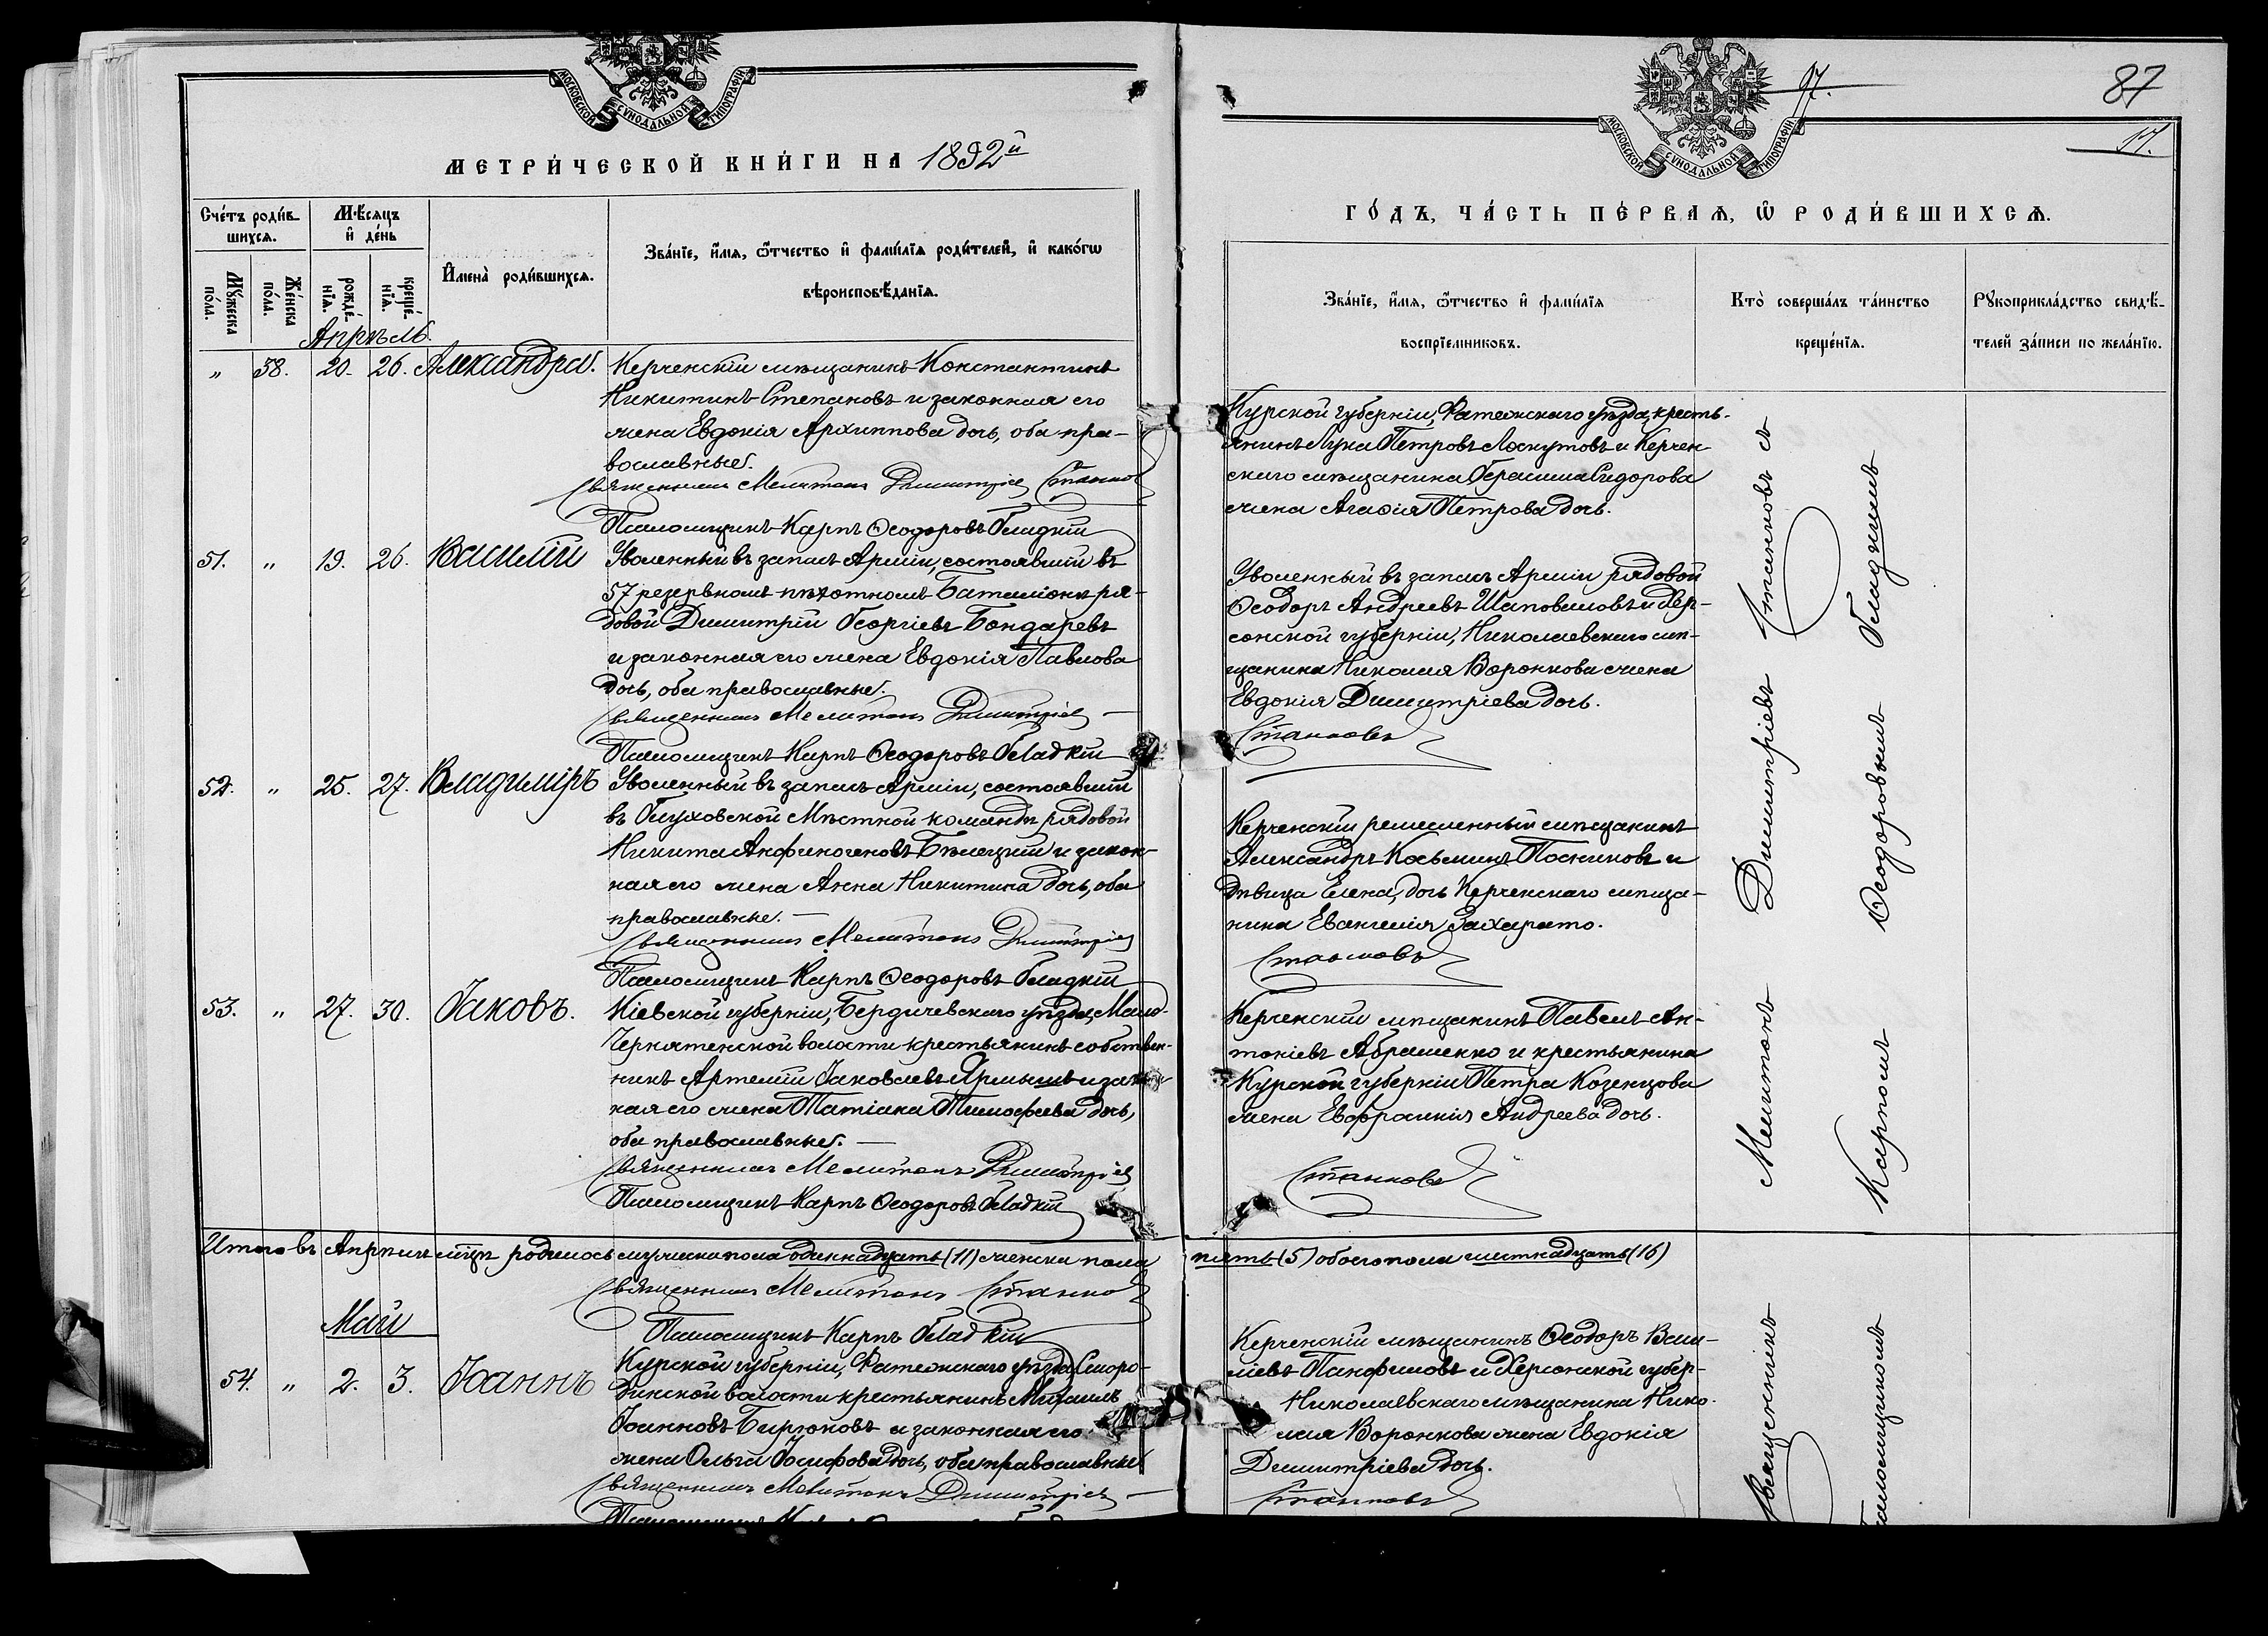 МОСКОВСКОЙ СѴНОДАЛЬНОЙ ТИПОГРАФІИ
МЕТРИ́ЧЕСКОЙ КНИ́ГИ НА 1892й
Сче́тъ роди́в-
шихсѧ.
Мѣ́сяцъ
и҆ де́нь
Мꙋ́жеска
по́ла.
Же́нска
по́ла.
рожде́-
нїѧ.
креще́-
нїѧ.
И҆мена̀ роди́вшихсѧ.
Зва́нїе, и҆́мѧ, ѻ҆́тчество и҆ фами́лїѧ роди́телей, и҆ како́гѡ
вѣроисповѣ́данїѧ.
Апрѣль.
" 38. 20. 26. Александра.
Керченскій мѣщанинъ Константинъ
Никитинъ Степановъ и законная его
жена Евдокія Архиппова дочь, оба пра-
вославные.
Священникъ Мелитонъ Димитріевъ Станковъ
Псаломщикъ Карпъ Ѳеодоровъ Гладкій
51. " 19. 26. Василій
Уволенный въ запасъ Арміи, состоявшій въ
57 резервномъ пѣхотномъ Баталіонѣ ря-
довой Димитрій Георгіевъ Бондаревъ
и законная его жена Евдокія Павлова
дочь, оба православные.
Священникъ Мелитонъ Димитріевъ —
Псаломщикъ Карпъ Ѳеодоровъ Гладкій
52. " 25. 27. Владиміръ
Уволенный въ запасъ Арміи, состоявшій
въ Глуховской Мѣстной командѣ рядовой
Никита Анфиногеновъ Бѣлецкій и закон-
ная его жена Анна Никитина дочь, оба
православные. —
Священникъ Мелитонъ Димитріевъ
Псаломщикъ Карпъ Ѳеодоровъ Гладкій
53. " 27. 30. Іаковъ.
Кіевской губерніи, Бердичевскаго уѣзда, Мало-
Чернятенской волости крестьянинъ собствен-
никъ Артемій Іаковлевъ Ярмышъ и закон
ная его жена Татіана Тимофеева дочь,
оба православные. —
Священникъ Мелитонъ Димитріевъ
Псаломщикъ Карпъ Ѳеодоровъ Гладкій
Итого въ Апрѣлѣ мцѣ родилось мужеска пола одиннадцать (11) женска пола
Священникъ Мелитонъ Станковъ
Псаломщикъ Карпъ Гладкій
Май
54. " 2. 3. Іоаннъ
Курской губерніи, Фатежскаго уѣзда, Сморо-
динской волости крестьянинъ Михаилъ
Іоанновъ Бирюковъ и законная его
жена Ольга Іосифова дочь, оба православные
Священникъ Мелитонъ Димитріевъ —
МОСКОВСКОЙ СѴНОДАЛЬНОЙ ТИПОГРАФІИ
97.
87
17.
ГО́ДЪ, ЧА́СТЬ ПЕ́РВАѦ, Ѡ҆ РОДИ́ВШИХСѦ.
Зва́нїе, и҆́мѧ, ѻ҆́тчество и҆ фами́лїѧ
воспрїе́мниковъ.
Кто̀ соверша́лъ та́инство
креще́нїѧ.
Рꙋкоприкла́дство свидѣ́-
телей за́писи по жела́нїю.
Курской губерніи, Фатежскаго уѣзда, кресть-
янинъ Лука Петровъ Лоскутовъ и Керчен
скаго мѣщанина Герасима Сидорова
жена Агафія Петрова дочь.
Уволенный въ запасъ Арміи рядовой
Ѳеодоръ Андреевъ Шаповаловъ и Хер-
сонской губерніи, Николаевскаго мѣ-
щанина Николая Воронкова жена
Евдокія Димитріева дочь.
Станковъ
Керченскій ремесленный мѣщанинъ
Александръ Косьминъ Посниковъ и
дѣвица Елена, дочь Керченскаго мѣща-
нина Евангелія Захарато.
Станковъ
Керченскій мѣщанинъ Павелъ Ан-
тоніевъ Абраменко и крестьянина
Курской губерніи Петра Козенцова
жена Евфросинія Андреева дочь.
Станковъ
пять (5) обоего пола шестнадцать (16)
Керченскій мѣщанинъ Ѳеодоръ Васи-
ліевъ Панфиловъ и Херсонской губер-
Николаевскаго мѣщанина Нико-
лая Воронкова жена Евдокія
Димитріева дочь.
Станковъ
Священникъ Мелитонъ Димитріевъ Станковъ съ
Псаломщикомъ Карпомъ Ѳеодоровымъ Гладкимъ